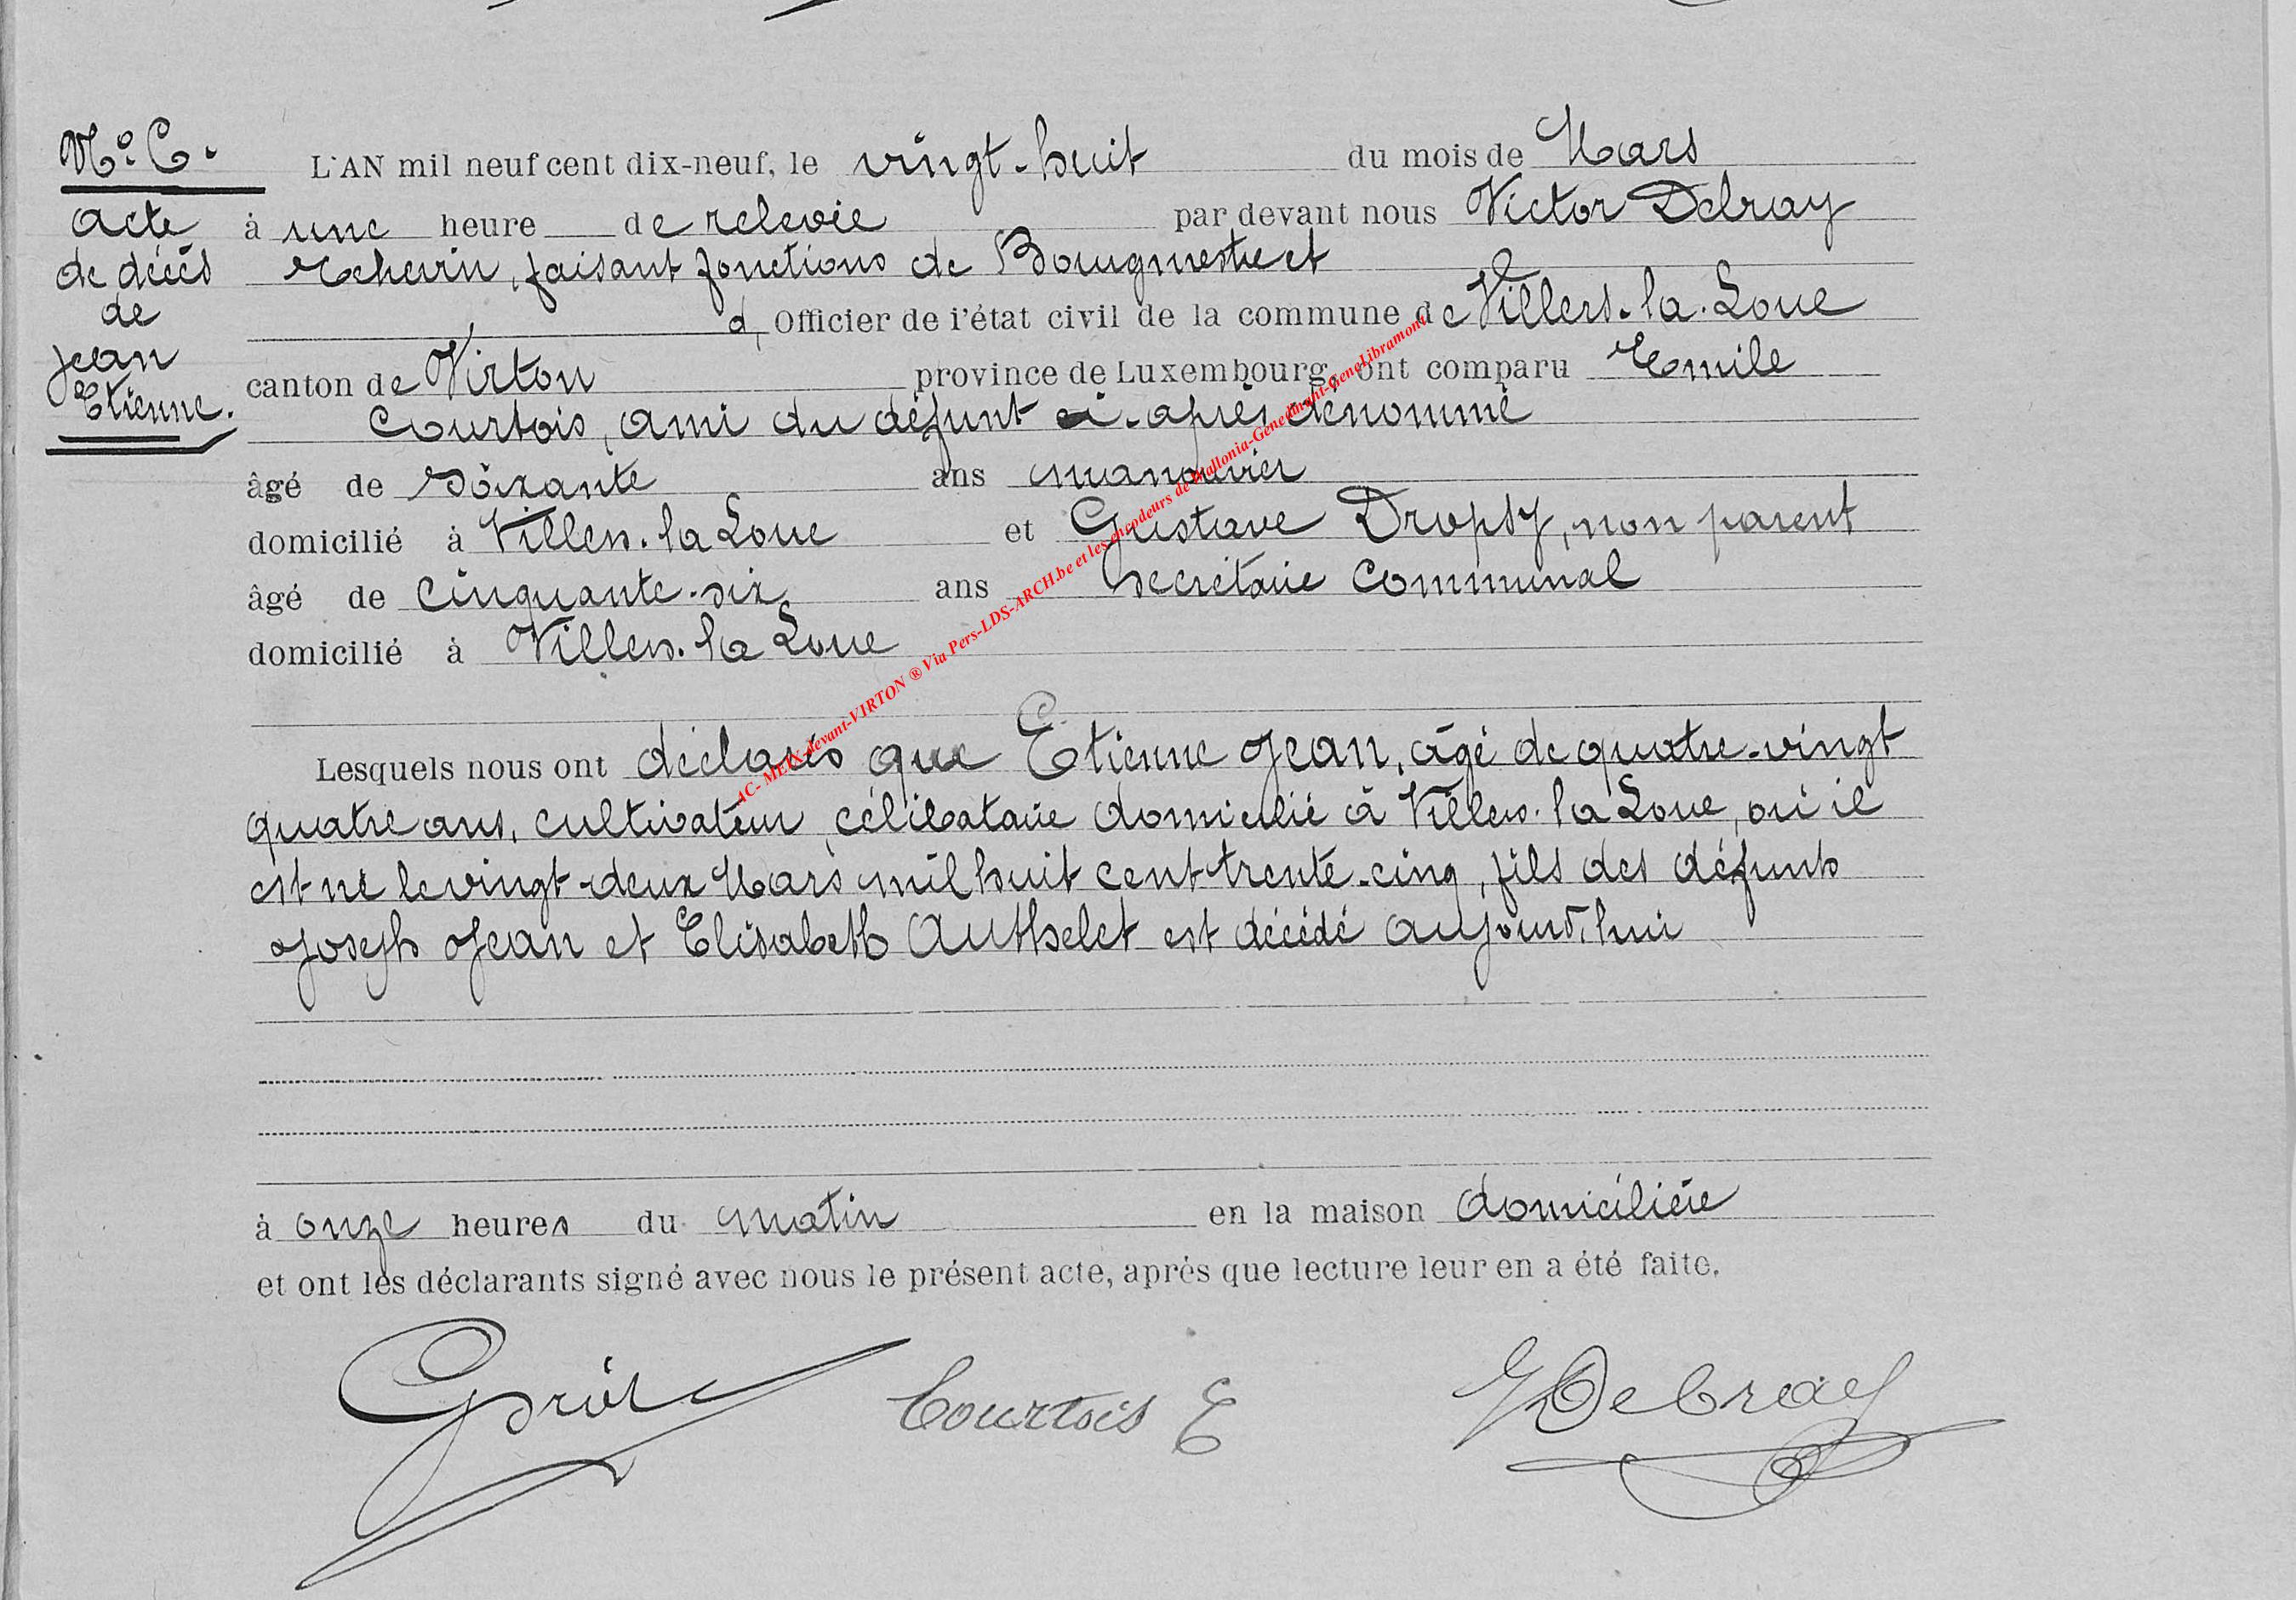 N° 6.
acte
de décès
de
Jean
Etienne.
L'AN mil neuf cent dix-neuf, le vingt-huit du mois de Mars
à une heure de relevée par devant nous Victor Debray
Echevin, faisant fonctions de Bourgmestre et
d, Officier de l'état civil de la commune de Villers-la-Loue
canton de Virton province de Luxembourg, ont comparu Emile
Courtois, ami du défunt ci-après dénommé
âgé de soixante ans manouvrier
domicilié à Villers-la Loue et Gustave Dropsy, non parent
âgé de cinquante-six ans secrétaire communal
domicilié à Villers-la Loue
Lesquels nous ont déclaré que Etienne Jean, âgé de quatre-vingt
quatre ans, cultivateur, célibataire domicilié à Villers-la Loue, où il
est né le vingt-deux Mars mil huit cent trente-cinq, fils des défunts
Joseph Jean et Elisabeth Authelet est décédé aujourd'hui
à onze heures du matin en la maison domiciliére
et ont les déclarants signé avec nous le présent acte, après que lecture leur en a été faite.
Courtois E
VDebray
AC- MEIX-devant-VIRTON ® Via Pers-LDS-ARCH.be et les encodeurs de Wallonia-Genedinant-GeneLibramont